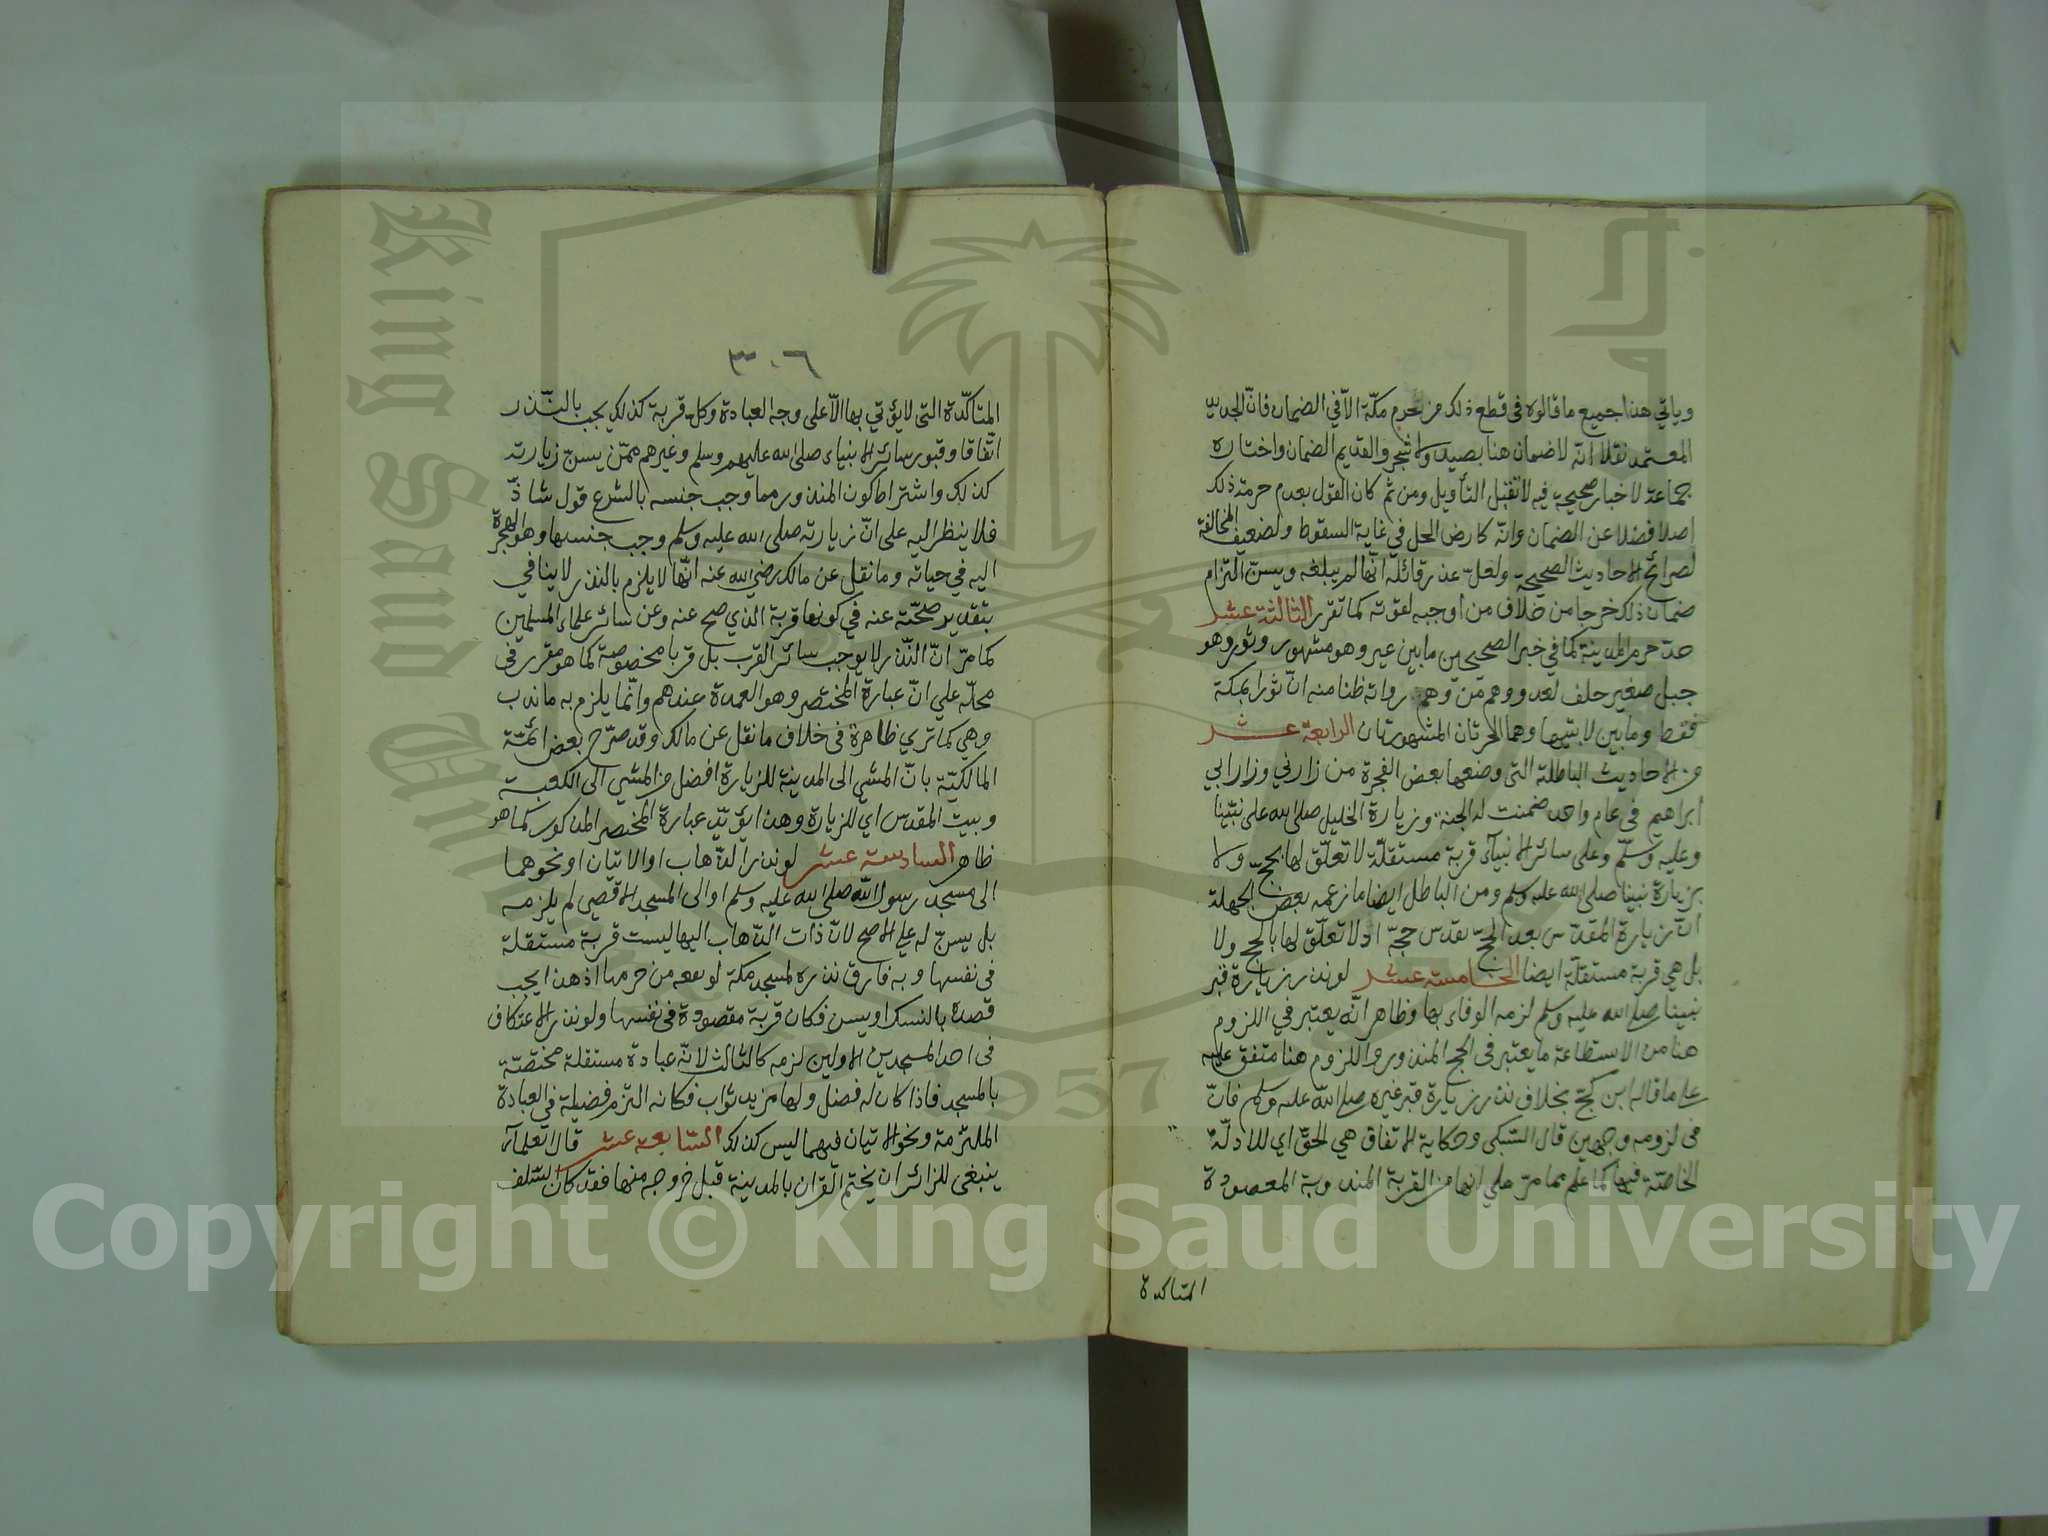 وياتي هنا جميع ما قالوه في قطع ذلك من حرم مكة الا في الضمان فان الجديد
المعتمد نقلا انه لا ضمان هنا بصيد ولا شجر والقديم الضمان واختاره
جماعة لاخبار صحيحة فيه لا تقبل التأويل ومن ثم كان القول بعدم حرمة ذلك
اصلا فضلا عن الضمان وانه كارض الحل في غاية السقوط ولضعيف المخالفة
لصرائح الاحاديث الصحيحة ولعل عذر قائله انها لم يبلغه ويسن التزام
ضمان ذلك خرجا من خلاف من اوجبه لقوته كما تقرر الثالثة عشر
حد حرم المدينة كما في خبر الصحيحين ما بين عير وهو مشهور وثور وهو
جبل صغير خلف احد ووهم من وهم رواته ظنا منه ان ثورا بمكة
فقط وما بين لابتيها وهما الحرتان المشهورتان الرابعة عشر
من الاحاديث الباطلة التي وضعها بعض الفجرة من زارني وزار ابي
ابراهيم في عام واحد ضمنت له الجنة وزيارة الخليل صلى الله على نبينا
وعليه وسلم وعلى سائر الانبياء قربة مستقلة لا تعلق لها بحج ولا
بزيارة نبينا صلى الله عليه وسلم ومن الباطل ايضا ما زعمه بعض الجهلة
ان زيارة المقدس بعد الحج تقدس حجه اذ لا تعلق لها بالحج ولا
بل هي قربة مستقلة ايضا الخامسة عشر لو نذر زيارة قبر
نبينا صلى الله عليه وسلم لزمه الوفاء بها وظاهر انه يعتبر في اللزوم
هنا من الاستطاعة ما يعتبر في الحج المنذور واللزوم هنا متفق عليه
على ما قاله ابن كج بخلاف نذر زيارة قبر غيره صلى الله عليه وسلم فان
في لزومه وجهين قال السبكي وحكاية الاتفاق هي الحق اي للادلة
الخاصة فيها كما علم مما مر على انها من القربة المندوبة المقصودة
المتاكدة
٣٠٦
المتاكدة التي لا يؤتي بها الا على وجه العبادة وكل قربة كذلك يجب بالنذر
اتفاقا وقبور سائر الانبياء صلى الله عليهم وسلم وغيرهم ممن يسن زيارته
كذلك واشتراط كون المنذور مما وجب جنسه بالشرع قول شاذ
فلا ينظر اليه على ان زيارته صلى الله عليه وسلم وجب جنسها وهو الهجرة
اليه في حياته وما نقل عن مالك رضي الله عنه انها لا يلزم بالنذر لا ينافي
بتقدير صحته عنه في كونها قربة الذي صح عنه وعن سائر علماء المسلمين
كما مر ان النذر لا يوجب سائر القرب بل قربا مخصوصة كما هو مقرر في
محله على ان عبارة المختصر وهو العمدة عندهم وانما يلزم به ما ندب
وهي كما تري ظاهرة في خلاف ما نقل عن مالك وقد صرح بعض ائمة
المالكية بان المشي الى المدينة للزيارة افضل من المشي الى الكعبة
وبيت المقدس اي للزيارة وهذا يؤيد عبارة المختصر المذكور كما هو
ظاهر السادسة عشر لو نذر الذهاب او الاتيان او نحوهما
الى مسجد رسول الله صلى الله عليه وسلم او الى المسجد الاقصى لم يلزمه
بل يسن له على الاصح لان ذات الذهاب اليها ليست قربة مستقلة
في نفسها وبه فارق نذره لمسجد مكة لو بقعه من حرمها اذ هذا يجب
قصده بالنسك او يسن فكان قربة مقصودة في نفسها ولو نذر الاعتكاف
في احد المسجدين الاولين لزمه كالثالث لانه عبادة مستقلة مختصة
بالمسجد فاذا كان له فضل ولها مزيد ثواب فكانه التزم فضيلة في العبادة
الملتزمة ونحو الاتيان فيهما ليس كذلك السابعة عشر قال العلماء
ينبغي للزائر ان يختم القران بالمدينة قبل خروجه منها فقد كان السلف
Copyright © King Saud University
King Saud University
1957